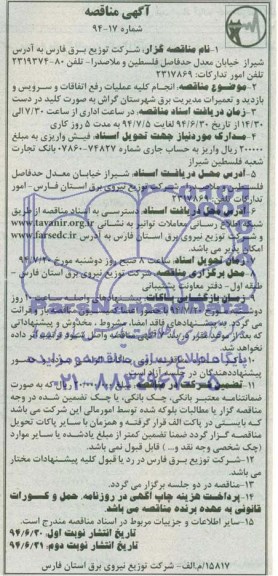 آگهی مناقصه
شماره ۱۷-۹۴
۱-نام مناقصه گزار: شرکت توزیع برق فارس به آدرس
شیراز خیابان معدل حدفاصل فلسطین و ملاصدرا- تلفن ۸۰-۲۳۱۹۳۷۴
تلفن امور تدارکات: ۲۳۱۷۸۶۹
۲-موضوع مناقصه: انجام کلیه عملیات رفع اتفاقات و سرویس و
بازدید و تعمیرات مدیریت برق شهرستان گراش به صورت کلید در دست
۳-زمان دریافت اسناد مناقصه: در ساعت اداری از ساعت ۷/۳۰ الی
۱۴/۳۰ از تاریخ ۹۴/۶/۳۰ لغایت ۹۴/۷/۵ به مدت ۵ روز کاری
۴-مدارک موردنیاز جهت تحویل اسناد: فیش واریزی به مبلغ
۲۰۰۰۰۰ ریال واریز به حساب جاری شماره ۰۷۸۶۰۰۷۴۸۲۷ بانک تجارت
شعبه فلسطین شیراز
۵-آدرس محل دریافت اسناد: شیراز خیابان معدل حدفاصل
فلسطین و ملاصدرا- شرکت توزیع نیروی برق استان فارس- امور
تدارکات تلفن ۲۳۱۷۸۶۹
۶-آدرس محل دریافت اسناد: دسترسی به اسناد مناقصه از طریق
شبکه اطلاع رسانی معاملات توانیر به نشانی www.tavanir.org.ir
و شرکت توزیع نیروی برق استان فارس به آدرس www.farsedc.ir
امکان پذیر می باشد.
۷-زمان تحویل اسناد: ساعت ۸ صبح روز دوشنبه مورخ ۹۴/۷/۲۰
۸-محل برگزاری مناقصه: شرکت توزیع نیروی برق استان فارس-
طبقه اول- دفتر معاونت پشتیبانی
۹-زمان بازگشایی پاکات: پیشنهادهای واصله ساعت ۱۰ روز
می گردد. به پیشنهادهای فاقد امضا، مشروط، مخدوش و پیشنهاداتی
نخواهد شد.
پیشنهاددهندگان در جلسه آزاد است.
ضمانتنامه معتبر بانکی، چک بانکی، یا چک تضمین شده در وجه
مناقصه گزار یا مطالبات بلوکه شده توسط امورمالی این شرکت می باشد
که بایستی در پاکت الف قرار گرفته و همزمان با سایر پاکات تحویل
مناقصه گزار گردد ضمنا تضمین کمتر از مبلغ یادشده یا سایر موارد
(چک شخصی وجه نقد و...) قابل قبول نمی باشد.
۱۲-شرکت توزیع برق فارس در رد یا قبول کلیه پیشنهادات مختار
می باشد.
۱۳-مناقصه در دو جلسه برگزار می گردد.
۱۴-پرداخت هزینه چاپ آگهی در روزنامه، حمل و کسورات
قانونی به عهده برنده مناقصه می باشد.
۱۵-سایر اطلاعات و جزییات مربوط در اسناد مناقصه مندرج است.
تاریخ انتشار نوبت اول: ۹۴/۶/۳۰
تاریخ انتشار نوبت دوم: ۹۴/۶/۳۱
۱۵۸۱۷/م.الف- شرکت توزیع نیروی برق استان فارس